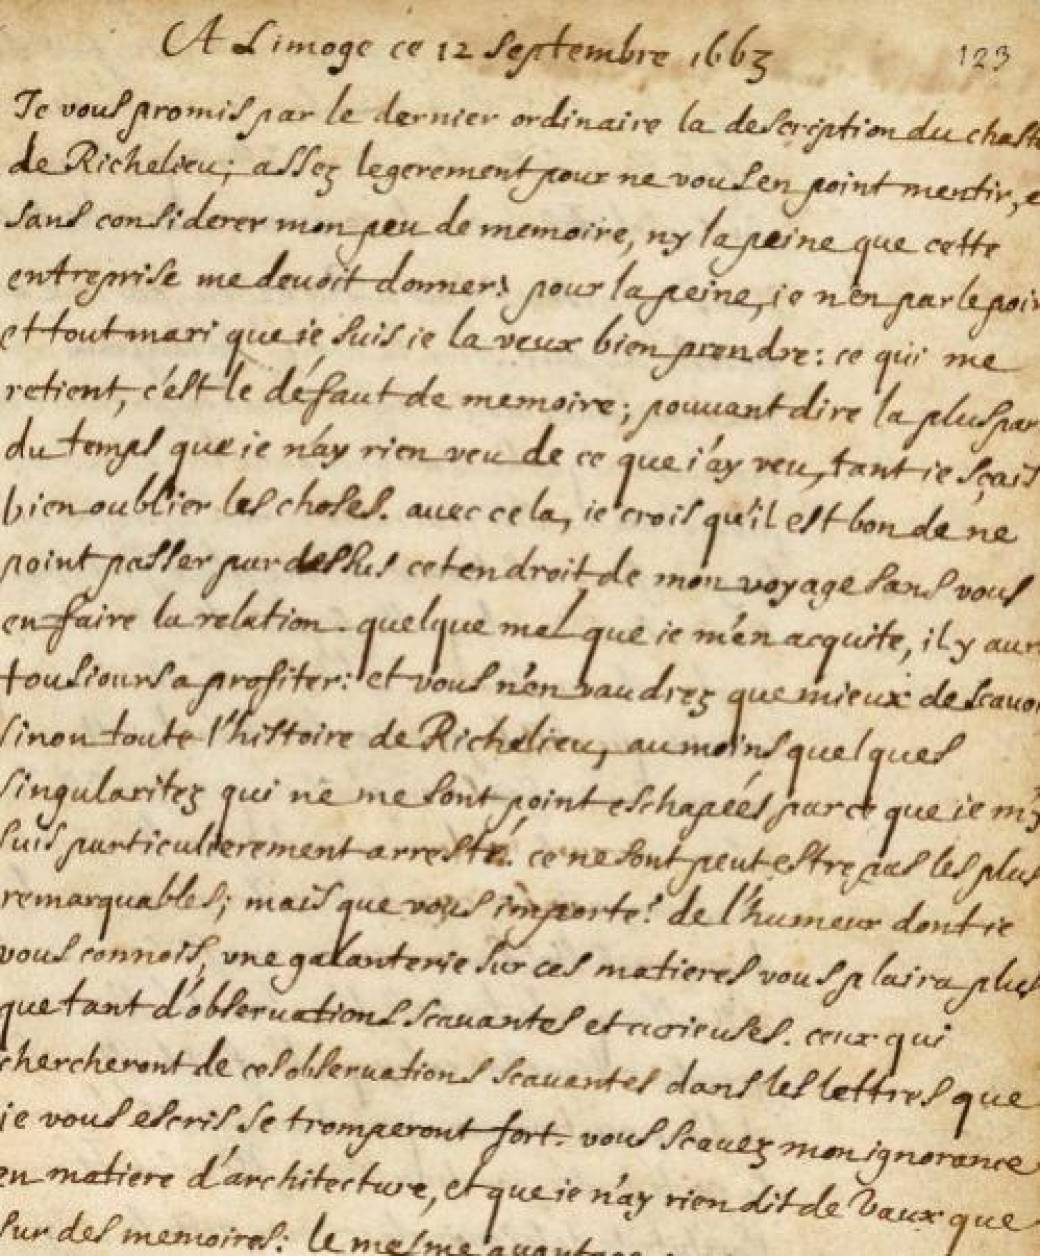 A Limoge ce 12 Septembre 1663
123
Je vous promis par le dernier ordinaire la description du chast
de Richelieu; assez legerement pour ne vous en point mentir, e
sans considerer mon peu de memoire, ny la peine que cette
entreprise me deuoit donner: pour la peine, ie n'en parle poin
et tout mari que ie suis ie la veux bien prendre: ce qui me
retient, c'est le défaut de memoire; pouuant dire la pluspar
du temps que ie n'ay rien veu de ce que i'ay veu, tant ie sçais
bien oublier les choses. auec cela, ie crois qu'il est bon de ne
point passer par dessus cet endroit de mon voyage sans vous
en faire la relation. quelque mal que ie m'en acquite, il y aur
tousiours a profiter: et vous n'en vaudrez que mieux de scauoi
sinon toute l'histoire de Richelieu, au moins quelques
singularitez qui ne me sont point eschapées parce que ie m'y
suis particulierement arresté. ce ne sont peut estre pas les plus
remarquables; mais que vous importe? de l'humeur dont ie
vous connois, vne galanterie sur ces matieres vous plaira plus
que tant d'obseruations scauantes et curieuses. ceux qui
chercheront de ces obseruations scauantes dans les lettres que
ie vous escris se tromperont fort. vous scauez mon ignorance
en matiere d'architecture, et que ie n'ay rien dit de Vaux que
sur des memoires: le mesme auantage